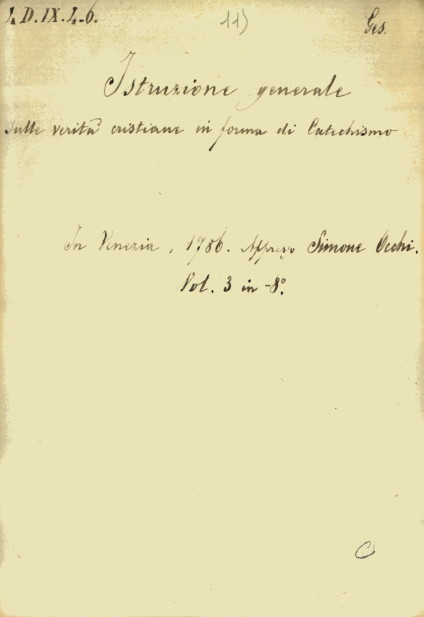 1. D. IX. 4.-6. 11) Ges.
Istruzione generale
sulle verità cristiane in forma di Catechismo
In Venezia, 1786. Appreso Simone Occhi.
Vol. 3 in-8°.
C